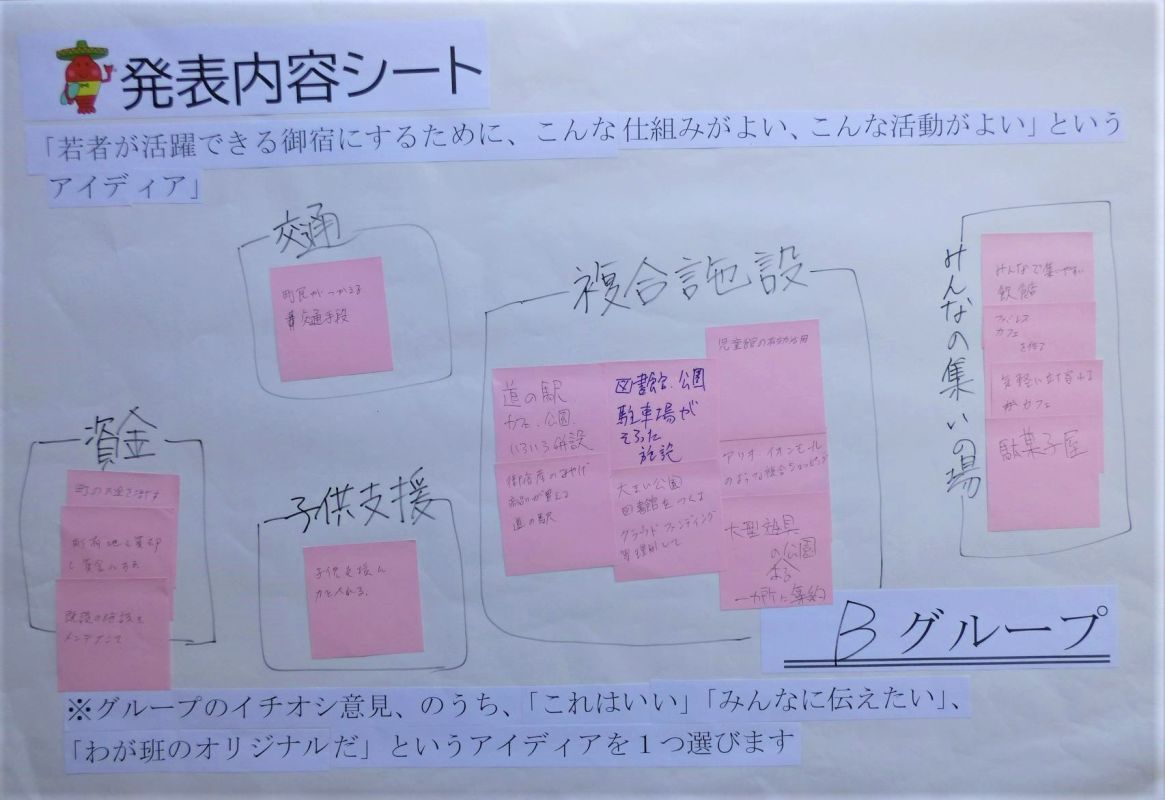 発表内容シート
「若者が活躍できる御宿にするために、こんな仕組みがよい、こんな活動がよい」という
アイディア」
交通
町民がつかえる
交通手段
資金
町有地を
し資金に
既設の施設を
メンテナンス
子供支援
子供支援に
力を入れる。
複合施設
道の駅
カフェ、公園
いろいろ併設
図書館、公園
駐車場が
そろった
施設
児童館の有効活用
御宿産の
が買える
道の駅
大きい公園
図書館をつくる
クラウドファンディング
アリオ イオンモール
のような複合ショッピング
大型遊具
の公園
一カ所に集約
みんなの集いの場
みんなで集いやすい
飲食店
ファミレス
カフェ
を作る
気軽に立寄れる
カフェ
駄菓子屋
Bグループ
※グループのイチオシ意見、のうち、「これはいい」「みんなに伝えたい」、
「わが班のオリジナルだ」というアイディアを1つ選びます